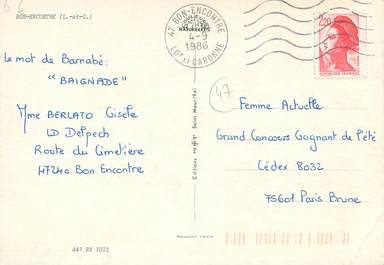 BON-ENCONTRE (L.-et-G.)
47 BON-ENCONTRE
4-9
1986
LOT ET GARONNE
2,20
Le mot de Barnabé:
"BAIGNADE"
Mme BERLATO Gisèle
LD Delpech
Route du Cimetière
47240 Bon Encontre
47
Femme Actuelle
Grand Concours Gagnant de l'été
Cédex 8032
75601 Paris Brune